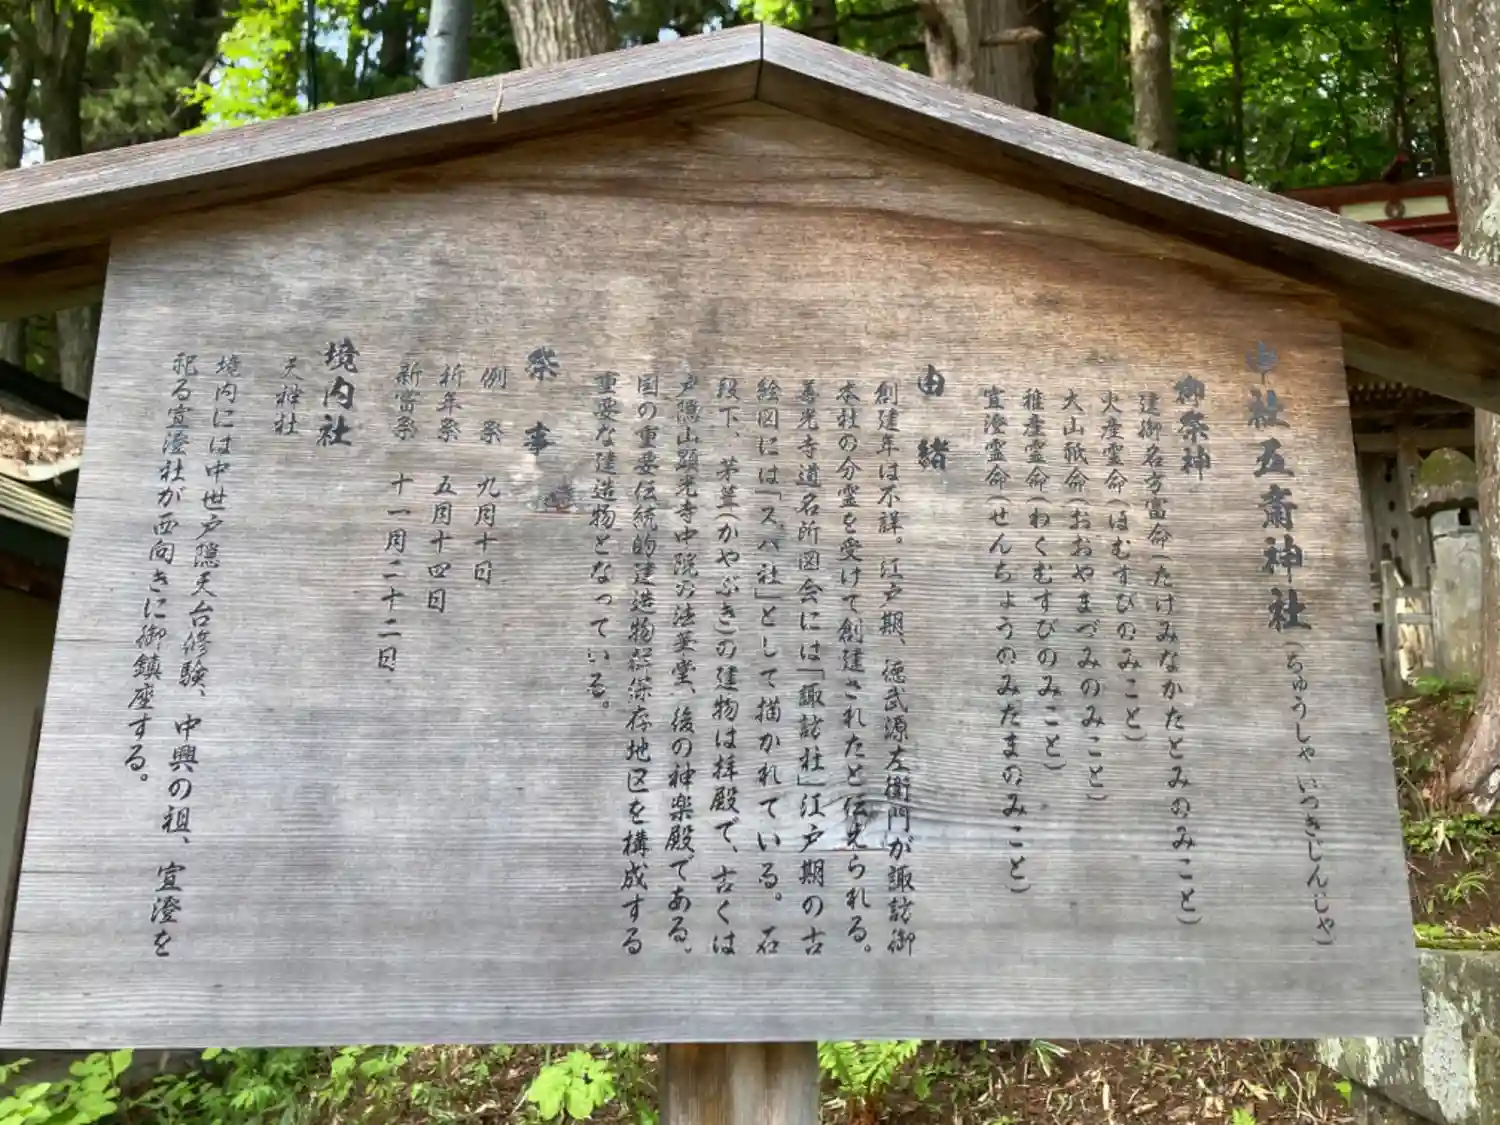 中社五斎神社(ちゅうしゃ いつきじんじゃ)
御祭神
建御名方富命(たけみなかたとみのみこと)
火産霊命(ほむすびのみこと)
大山祇命(おおやまづみのみこと)
稚産霊命(わくむすびのみこと)
宣澄霊命(せんちょうのみたまのみこと)
由緒
創建年は不詳。江戸期、徳武源左衛門が諏訪御
本社の分霊を受けて創建されたと伝えられる。
善光寺道名所図会には「諏訪社」江戸期の古
絵図には「スハ社」として描かれている。石
段下、茅葺(かやぶき)の建物は拝殿で、古くは
戸隠山顕光寺中院の法華堂、後の神楽殿である。
国の重要伝統的建造物群保存地区を構成する
重要な建造物となっている。
祭事
例祭 九月十日
祈年祭 五月十四日
新嘗祭 十一月二十二日
境内社
天神社
境内には中世戸隠天台修験、中興の祖、宣澄を
祀る宣澄社が西向きに御鎮座する。